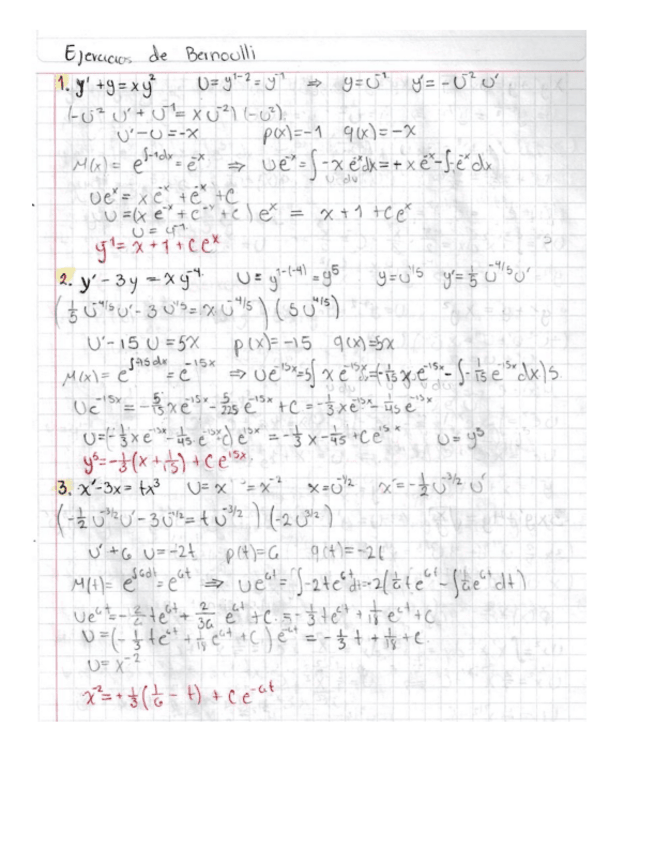 Ejercicios de Bernoulli
1. y' + y = xy² U = y¹⁻² = y⁻¹ ⇒ y = U⁻¹ y' = -U⁻² U'
(-U⁻² U' + U⁻¹ = x U⁻²) (-U²)
U' - U = -x p(x) = -1 q(x) = -x
M(x) = e^∫-1dx = e⁻ˣ ⇒ Ue⁻ˣ = ∫-x e⁻ˣ dx = +x e⁻ˣ - ∫-e⁻ˣ dx
U dv
Ue⁻ˣ = x e⁻ˣ + e⁻ˣ + C
U = (x e⁻ˣ + e⁻ˣ + c) eˣ = x + 1 + Ceˣ
U = y⁻¹
y⁻¹ = x + 1 + C eˣ
2. y' - 3y = x y⁻⁴ U = y¹⁻⁽⁻⁴⁾ = y⁵ y = U^1/5 y' = 1/5 U^-4/5 U'
(1/5 U^-4/5 U' - 3 U^1/5 = x U^-4/5) (5 U^4/5)
U' - 15 U = 5x p(x) = -15 q(x) = 5x
M(x) = e^∫-15dx = e^-15x ⇒ Ue^-15x = 5∫ x e^-15x = (-1/15 x e^-15x - ∫-1/15 e^-15x dx)5
Ue^-15x = -5/15 x e^-15x - 5/225 e^-15x + C = -1/3 x e^-15x - 1/45 e^-15x
U = (-1/3 x e^-15x - 1/45 e^-15x + c) e^15x = -1/3 x - 1/45 + Ce^15x U = y⁵
y⁵ = -1/3 (x + 1/15) + C e^15x
3. x' - 3x = tx³ U = x = x⁻² x = U^-1/2 x' = -1/2 U^-3/2 U'
(-1/2 U^-3/2 U' - 3U^-1/2 = t U^-3/2) (-2 U^3/2)
U' + 6 U = -2t p(t) = 6 q(t) = -2t
M(t) = e^∫6dt = e^6t ⇒ Ue^6t = ∫-2te^6t dt = -2(1/6 t e^6t - ∫1/6 e^6t dt)
Ue^6t = -2/6 te^6t + 2/36 e^6t + C = -1/3 te^6t + 1/18 e^6t + C
U = (-1/3 te^6t + 1/18 e^6t + C) e^-6t = -1/3 t + 1/18 + C
U = x⁻²
x⁻² = +1/3 (1/6 - t) + C e^-6t